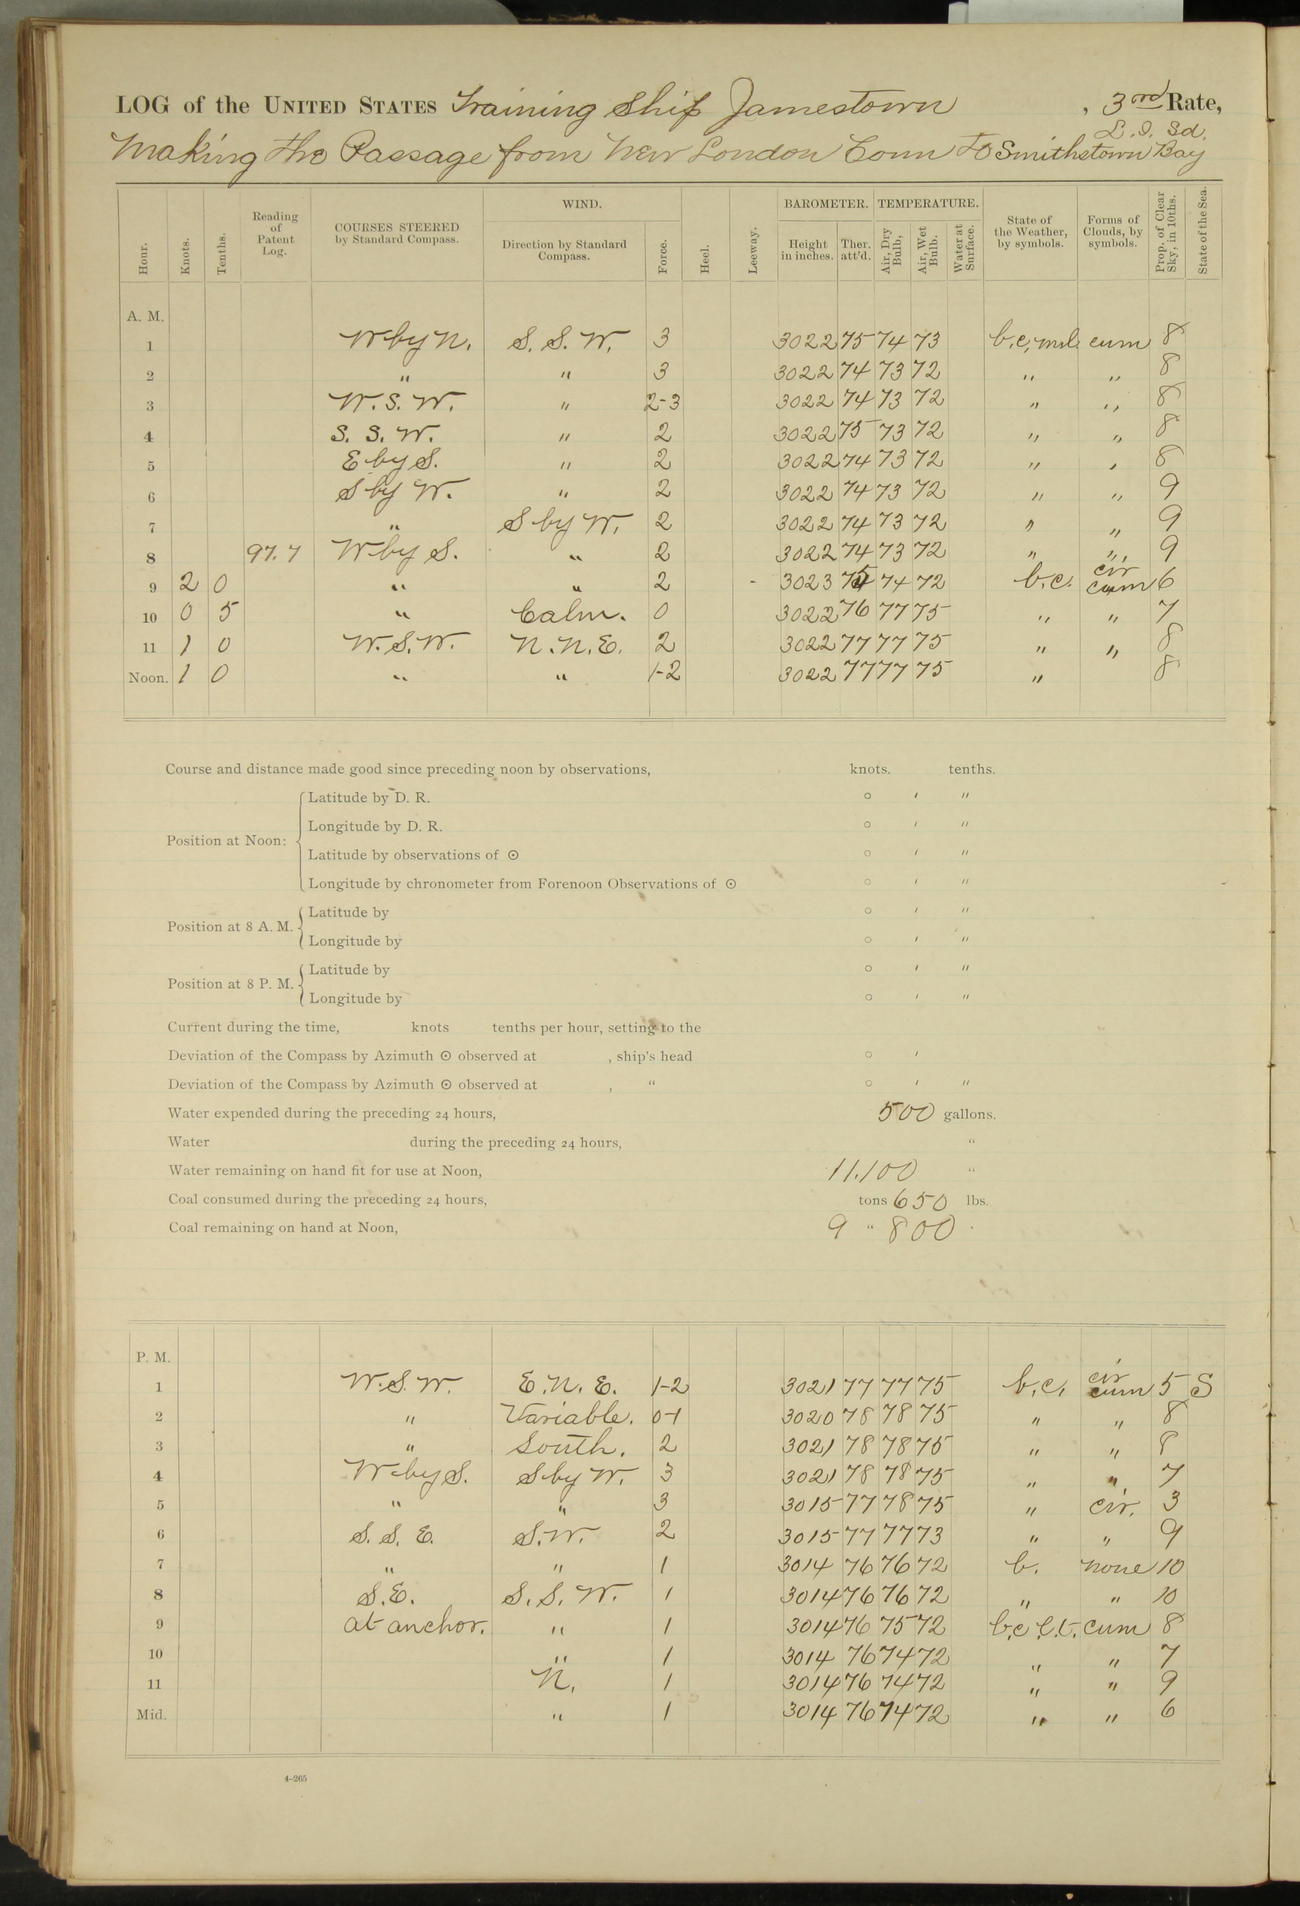 LOG of the UNITED STATES Training Ship Jamestown , 3rd Rate,
L. I. Sd.
Making the Passage from New London Conn to Smithstown Bay
Hour. Knots. Tenths. Reading of Patent Log. COURSES STEERED by Standard Compass. WIND. Direction by Standard Compass. Force. Heel. Leeway. BAROMETER. Height in inches. Ther. att'd. TEMPERATURE. Air, Dry Bulb, Air, Wet Bulb. Water at Surface. State of the Weather, by symbols. Forms of Clouds, by symbols. Prop. of Clear Sky, in 10ths. State of the Sea.
A. M.
1 W by N. S. S. W. 3 3022 75 74 73 b.c. cum 8
2 " " 3 3022 74 73 72 " " 8
3 W. S. W. " 2-3 3022 74 73 72 " " 8
4 S. S. W. " 2 3022 75 73 72 " " 8
5 E by S. " 2 3022 74 73 72 " " 8
6 S by W. " 2 3022 74 73 72 " " 9
7 " S by W. 2 3022 74 73 72 " " 9
8 97.7 W by S. " 2 3022 74 73 72 " " 9
9 2 0 " " 2 3023 75 74 72 b.c. cir cum 6
10 0 5 " Calm. 0 3022 76 77 75 " " 7
11 1 0 W. S. W. N. N. E. 2 3022 77 77 75 " " 8
Noon. 1 0 " " 1-2 3022 77 77 75 " 8
Course and distance made good since preceding noon by observations, knots. tenths.
Position at Noon:
Latitude by D. R. ° ′ ″
Longitude by D. R. ° ′ ″
Latitude by observations of ⊙ ° ′ ″
Longitude by chronometer from Forenoon Observations of ⊙ ° ′ ″
Position at 8 A. M.
Latitude by ° ′ ″
Longitude by ° ′ ″
Position at 8 P. M.
Latitude by ° ′ ″
Longitude by ° ′ ″
Current during the time, knots tenths per hour, setting to the
Deviation of the Compass by Azimuth ⊙ observed at , ship's head ° ′
Deviation of the Compass by Azimuth ⊙ observed at , " ° ′ ″
Water expended during the preceding 24 hours, 500 gallons.
Water during the preceding 24 hours, "
Water remaining on hand fit for use at Noon, 11.100 "
Coal consumed during the preceding 24 hours, tons 650 lbs.
Coal remaining on hand at Noon, 9 " 800 "
P. M.
1 W. S. W. E. N. E. 1-2 3021 77 77 75 b.c. cir cum 5 S
2 " Variable. 0-1 3020 78 78 75 " " 8
3 " South. 2 3021 78 78 75 " " 8
4 W by S. S by W. 3 3021 78 78 75 " " 7
5 " " 3 3015 77 78 75 " cir. 3
6 S. S. E. S. W. 2 3015 77 77 73 " " 9
7 " " 1 3014 76 76 72 b. none 10
8 S. E. S. S. W. 1 3014 76 76 72 " " 10
9 at anchor. " 1 3014 76 75 72 b.c l.t. cum 8
10 " 1 3014 76 74 72 " " 7
11 N. 1 3014 76 74 72 " " 9
Mid. " 1 3014 76 74 72 " " 6
4-265